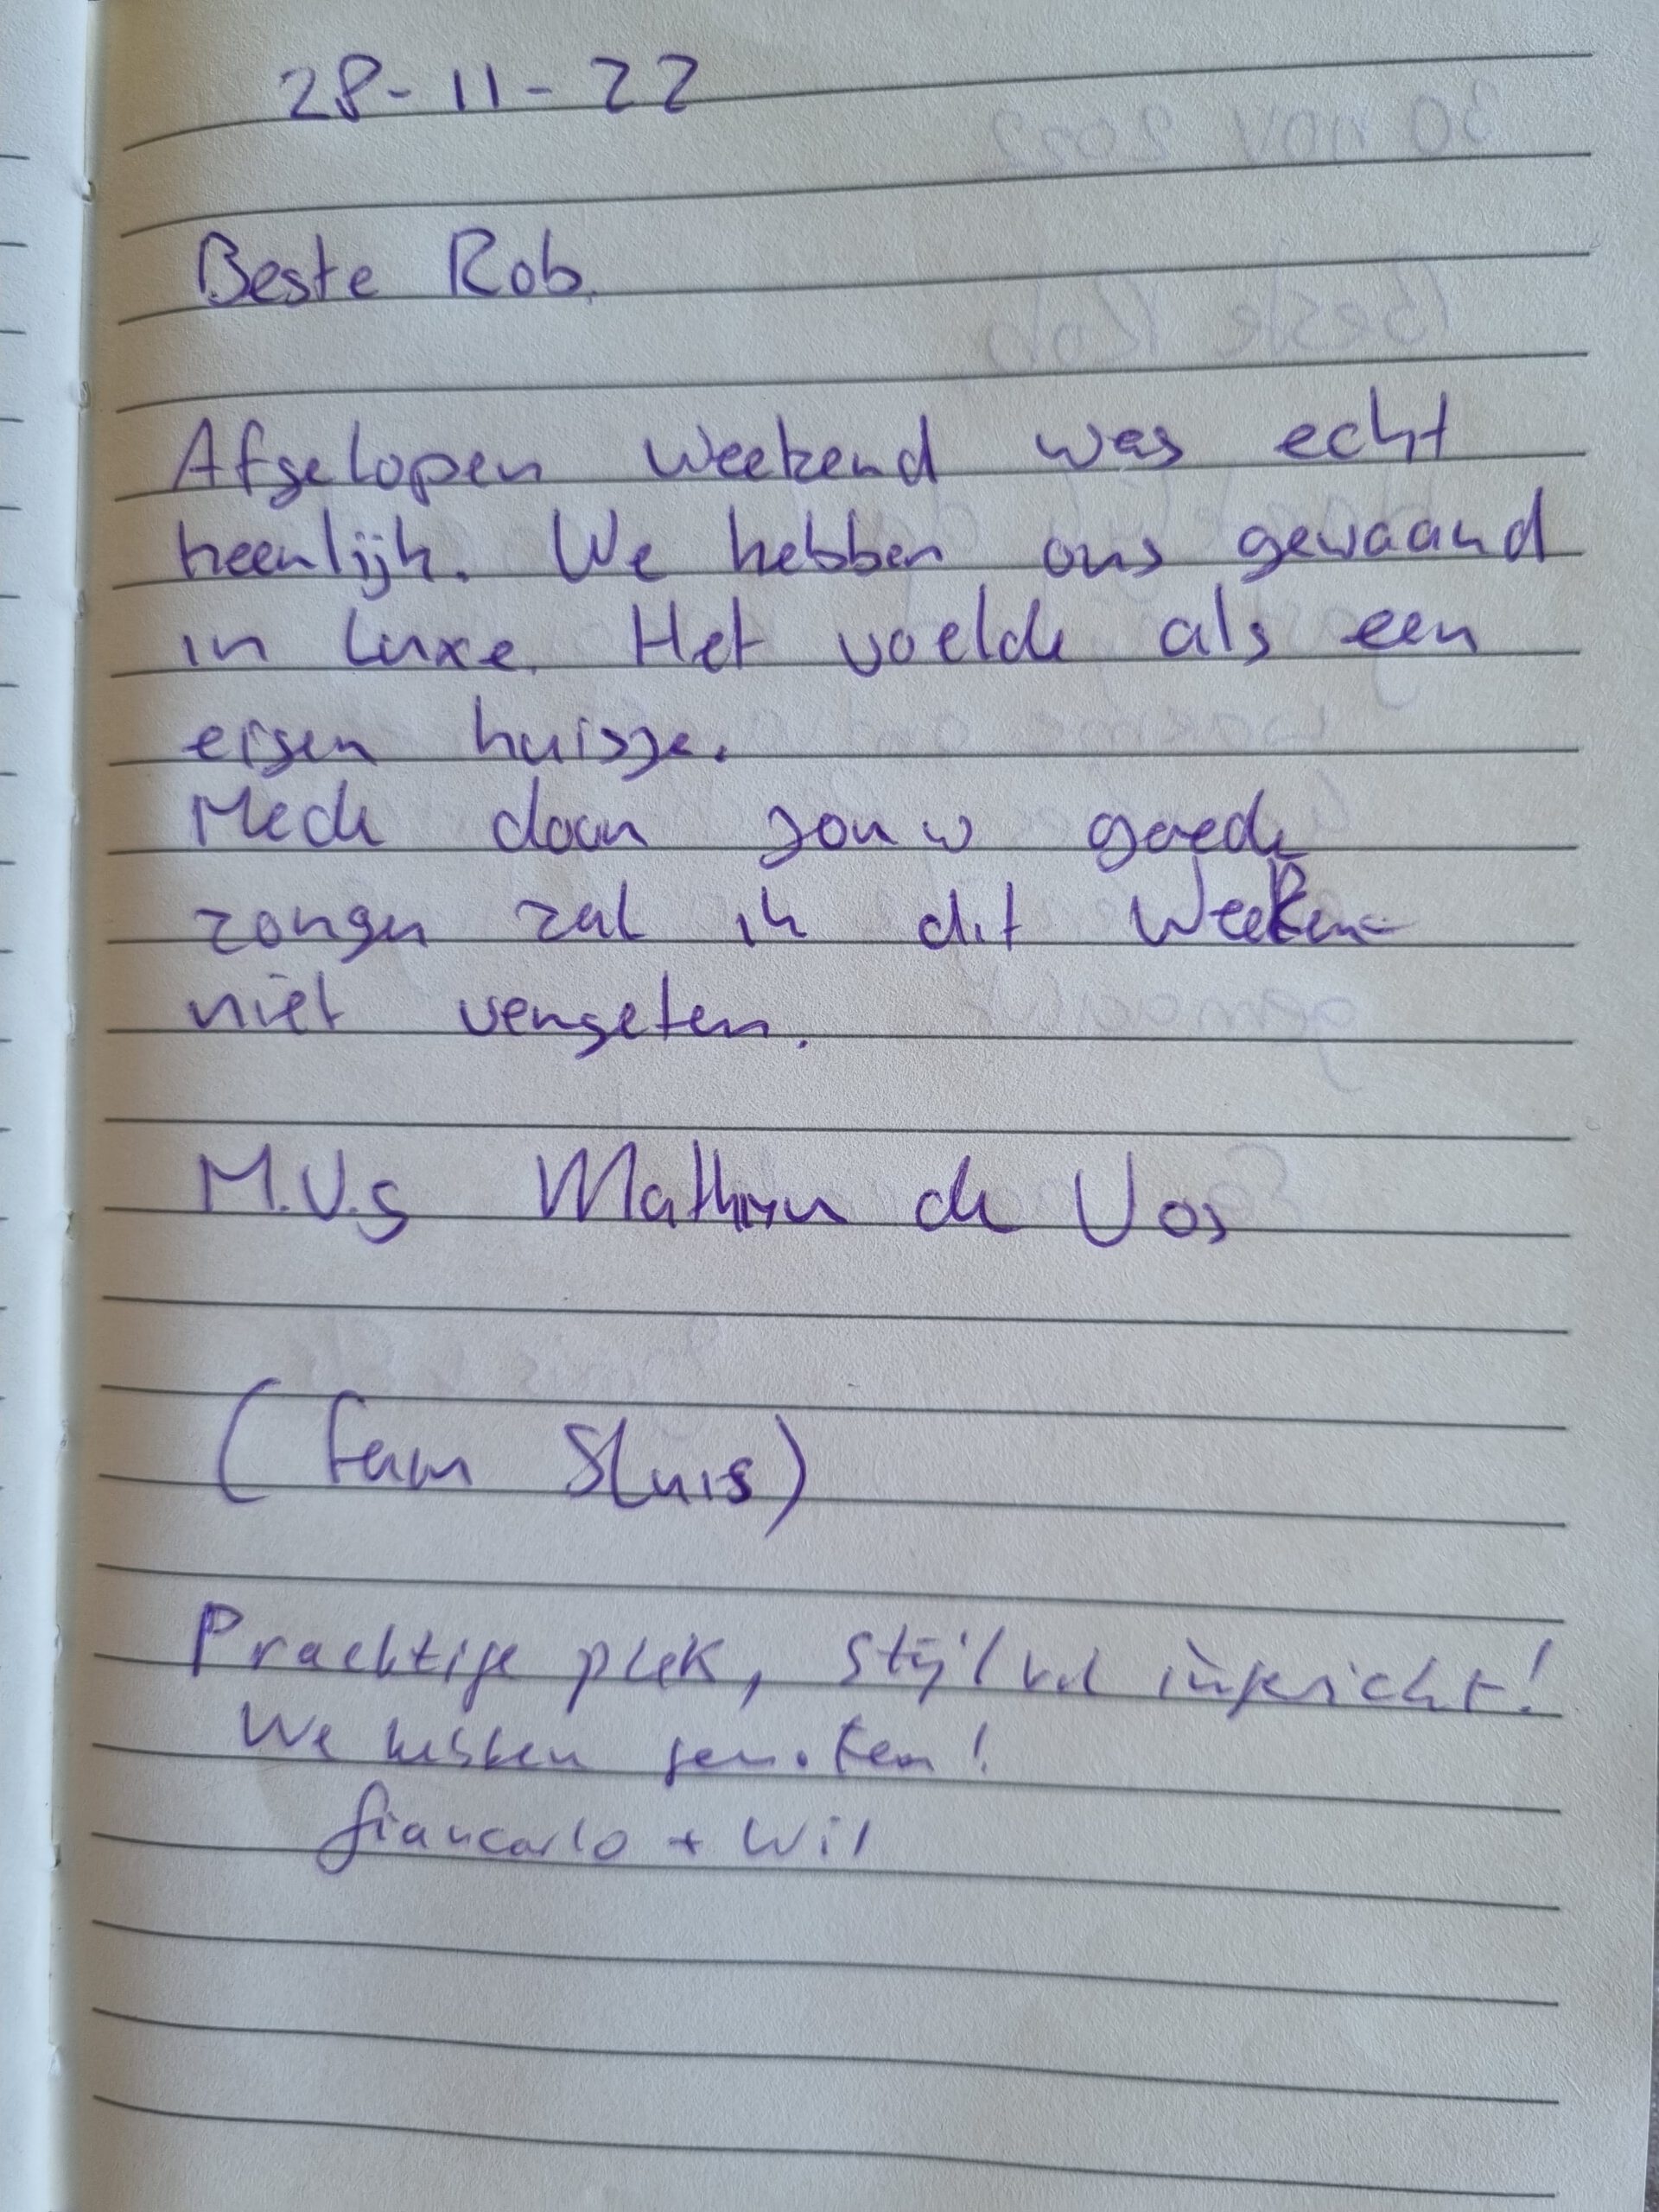 28-11-22
Beste Rob.
Afgelopen weekend was echt
heerlijk. We hebben ons gewaand
in luxe. Het voelde als een
eigen huisje.
Mede door jouw goede
zorgen zal ik dit Weeken
niet vergeten.
M.V.G Mathijn de Vos
(fam Sluis)
Prachtige plek, stijlvol ingericht!
We hebben genoten!
Giancarlo + Wil